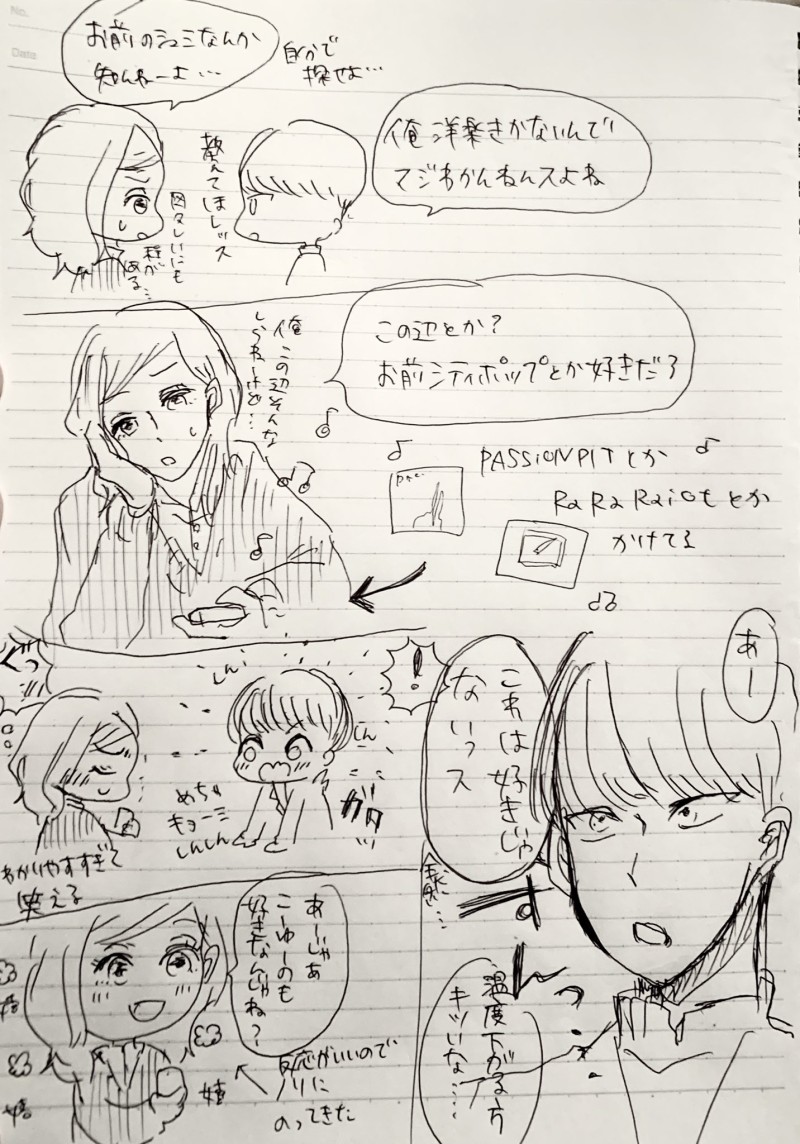 No.
Date
お前のシュミなんか
知んねーよ…
自分で
探せよ…
俺洋楽きかないんで
マジわかんねんスよね
教えてほしレッス
図々しいにも
程が
ある…
この辺とか?
お前シティポップとか好きだろ
俺この辺そんな
しらねーけど…
PASSiON PIT とか
Ra Ra Raiot とか
かけてる
あー
これは好きじゃ
ないっス
!
しん
しん
めちゃ
キョーミ
しんしん
ガタッ
ぐっ
わかりやすすぎて
笑える
温度下がる方
キツいな……
あーじゃあ
こーゆーのも
好きなんじゃね?
反応がいいので
ノリに
のってきた
嬉
嬉